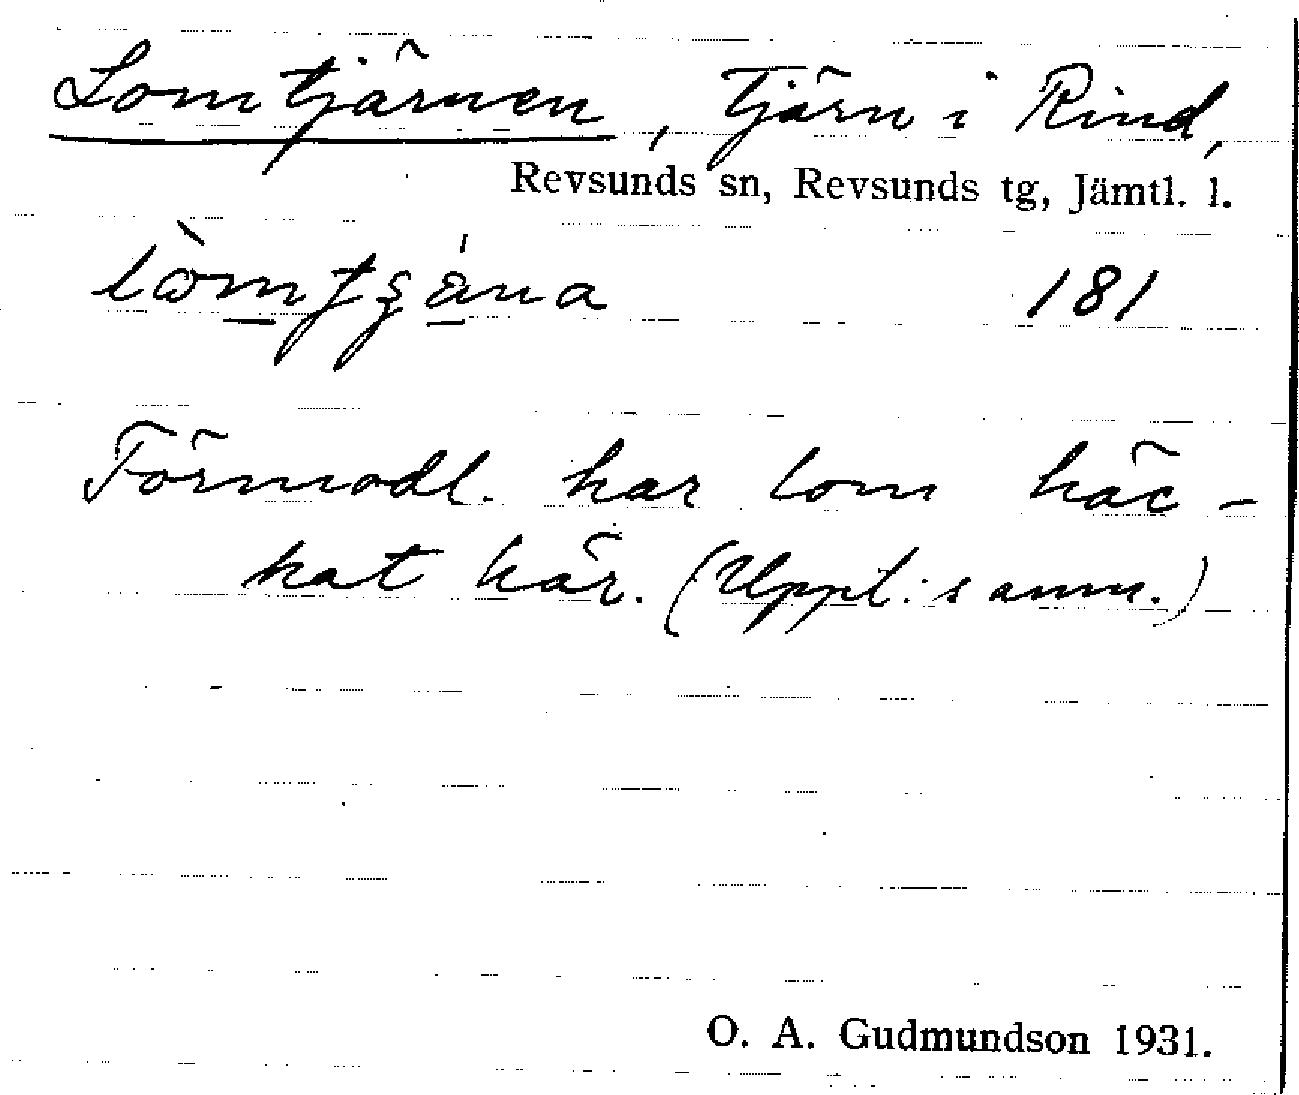 Lomtjärnen, tjärn i Rind,
Revsunds sn, Revsunds tg, Jämtl. l.
181
Förmodl. har lom häc-
kat här. (Uppl:s anm.)
O. A. Gudmundson 1931.